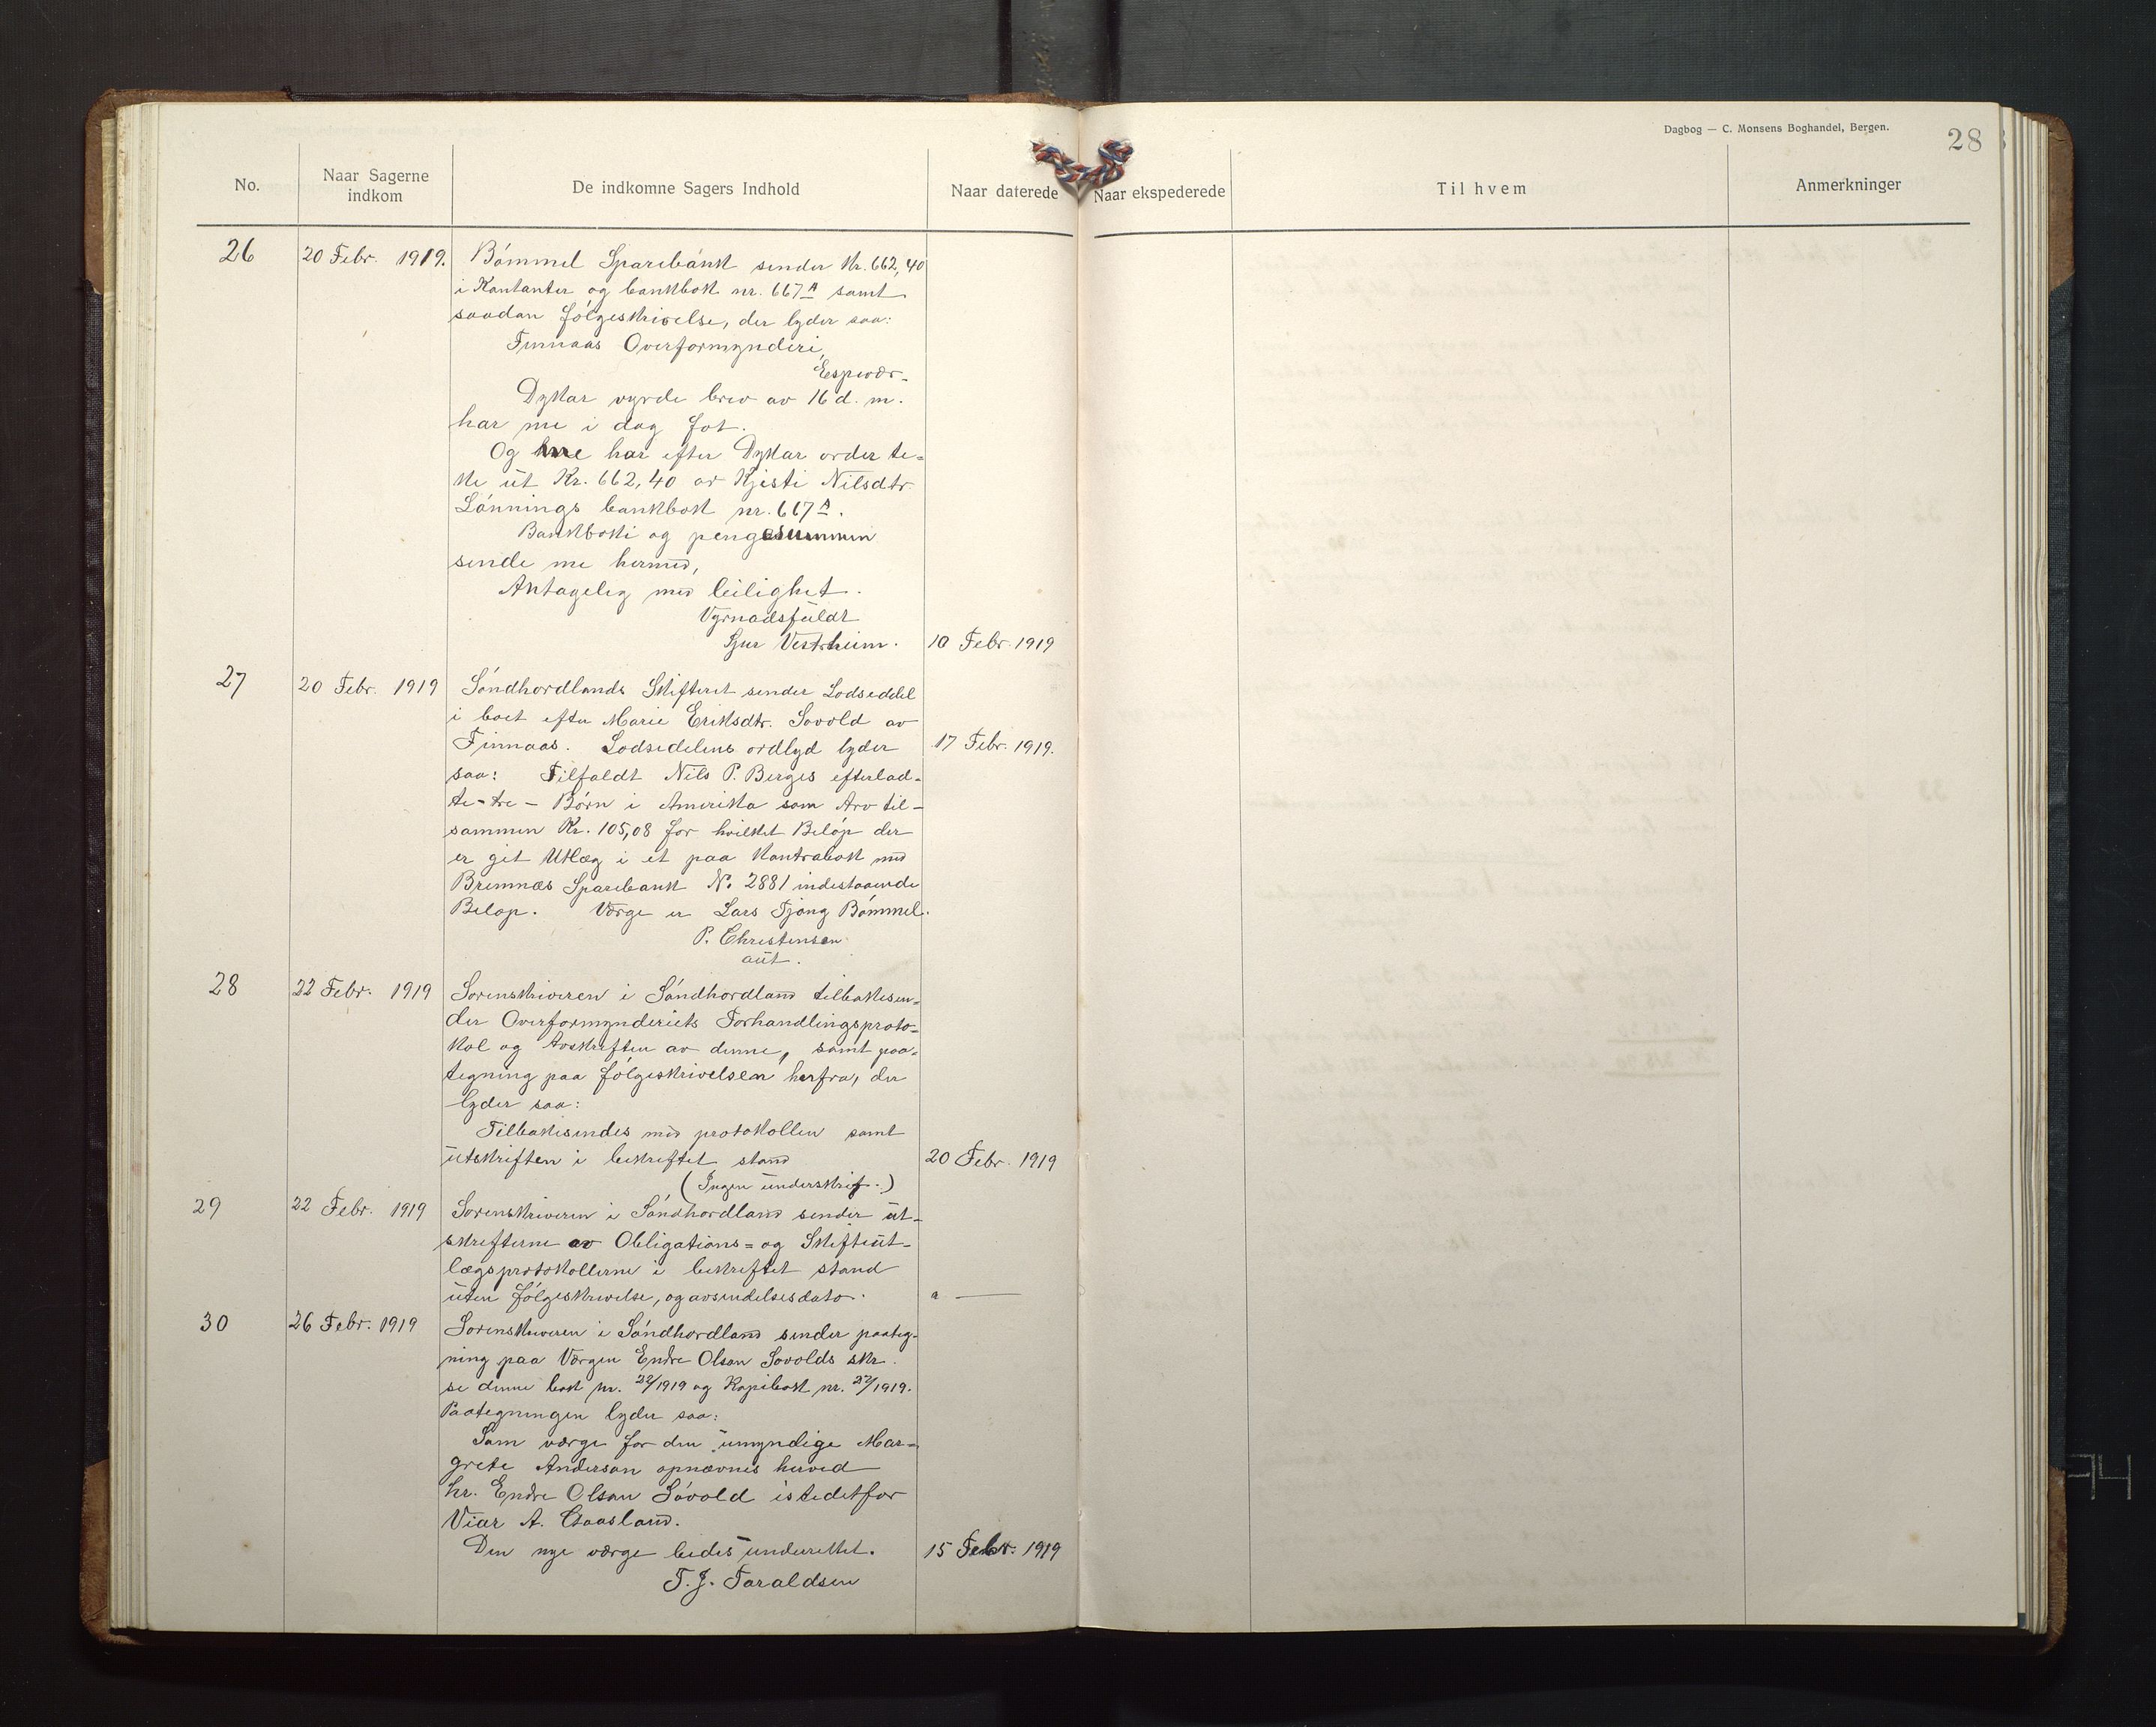 Dagbog — C. Monsens Boghandel, Bergen.
28
No.
Naar Sagerne indkom
De indkomne Sagers Indhold
Naar daterede
Naar ekspederede
Til hvem
Anmerkninger
26 20 Febr. 1919. Bómmel Sparebank sender Kr. 662,40
i Kontanter og bankbok nr. 667 A samt
saadan fólgeskrivelse, der lyder saa:
Finnaas Overformynderi,
Espevær.
Dykar vyrde brev av 16 d. m.
har me i dag fot.
Og me har efter Dykar order te-
ke ut Kr. 662,40 av Kjisti Nilsdtr.
Lónnings bankbok nr. 667 A.
Bankboki og pengesummen
sende me hermed,
Antageleg med leilighet.
Vyrnadsfuldt
Sjur Vestrheim. 10 Febr. 1919
27 20 Febr. 1919 Sóndhordlands Skifteret sender Lodseddel
i boet efter Marie Eriksdtr. Sovold av
Finnaas. Lodsedelens ordlyd lyder 17 Febr. 1919.
saa: Tilfaldt Nils P. Berges efterlad-
te - tre - Bórn i Amerika som Arv til-
sammen Kr. 105,08 for hvilket Belóp der
er git Utlæg i et paa Kontrabok med
Bremnæs Sparebank No 2881 indestaaende
Belop. Værge er Lars Tjong Bómmel.
P. Christensen
aut.
28 22 Febr. 1919 Sorenskriveren i Sóndhordland tilbakesen-
der Overformynderiets Forhandlingsproto-
kol og Avskriften av denne, samt paa-
tegning paa fólgeskrivelsen herfra, der
lyder saa:
Tilbakesendes med protokollen samt
utskriften i bekreftet stand 20 Febr. 1919
(Ingen underskrif.)
29 22 Febr. 1919 Sorenskriveren i Sóndhordland sender ut-
skrifterne av Obligations- og Skifteut-
lægsprotokollerne i bekreftet stand
uten fólgeskrivelse, og avsendelsesdato. a —
30 26 Febr. 1919 Sorenskriveren i Sóndhordland sender paateg-
ning paa Værgen Endre Olsen Sovolds skr.
se denne bok nr. 22/1919 og Kopibok nr. 27/1919.
Paategningen lyder saa:
Som værge for den umyndige Mar-
grete Anderson opnævnes herved
hr. Endre Olsen Sóvold istedetfor
Viar A. Gaasland.
Den nye værge bedes underettet. 15 Febr. 1919
T. J. Taraldsen